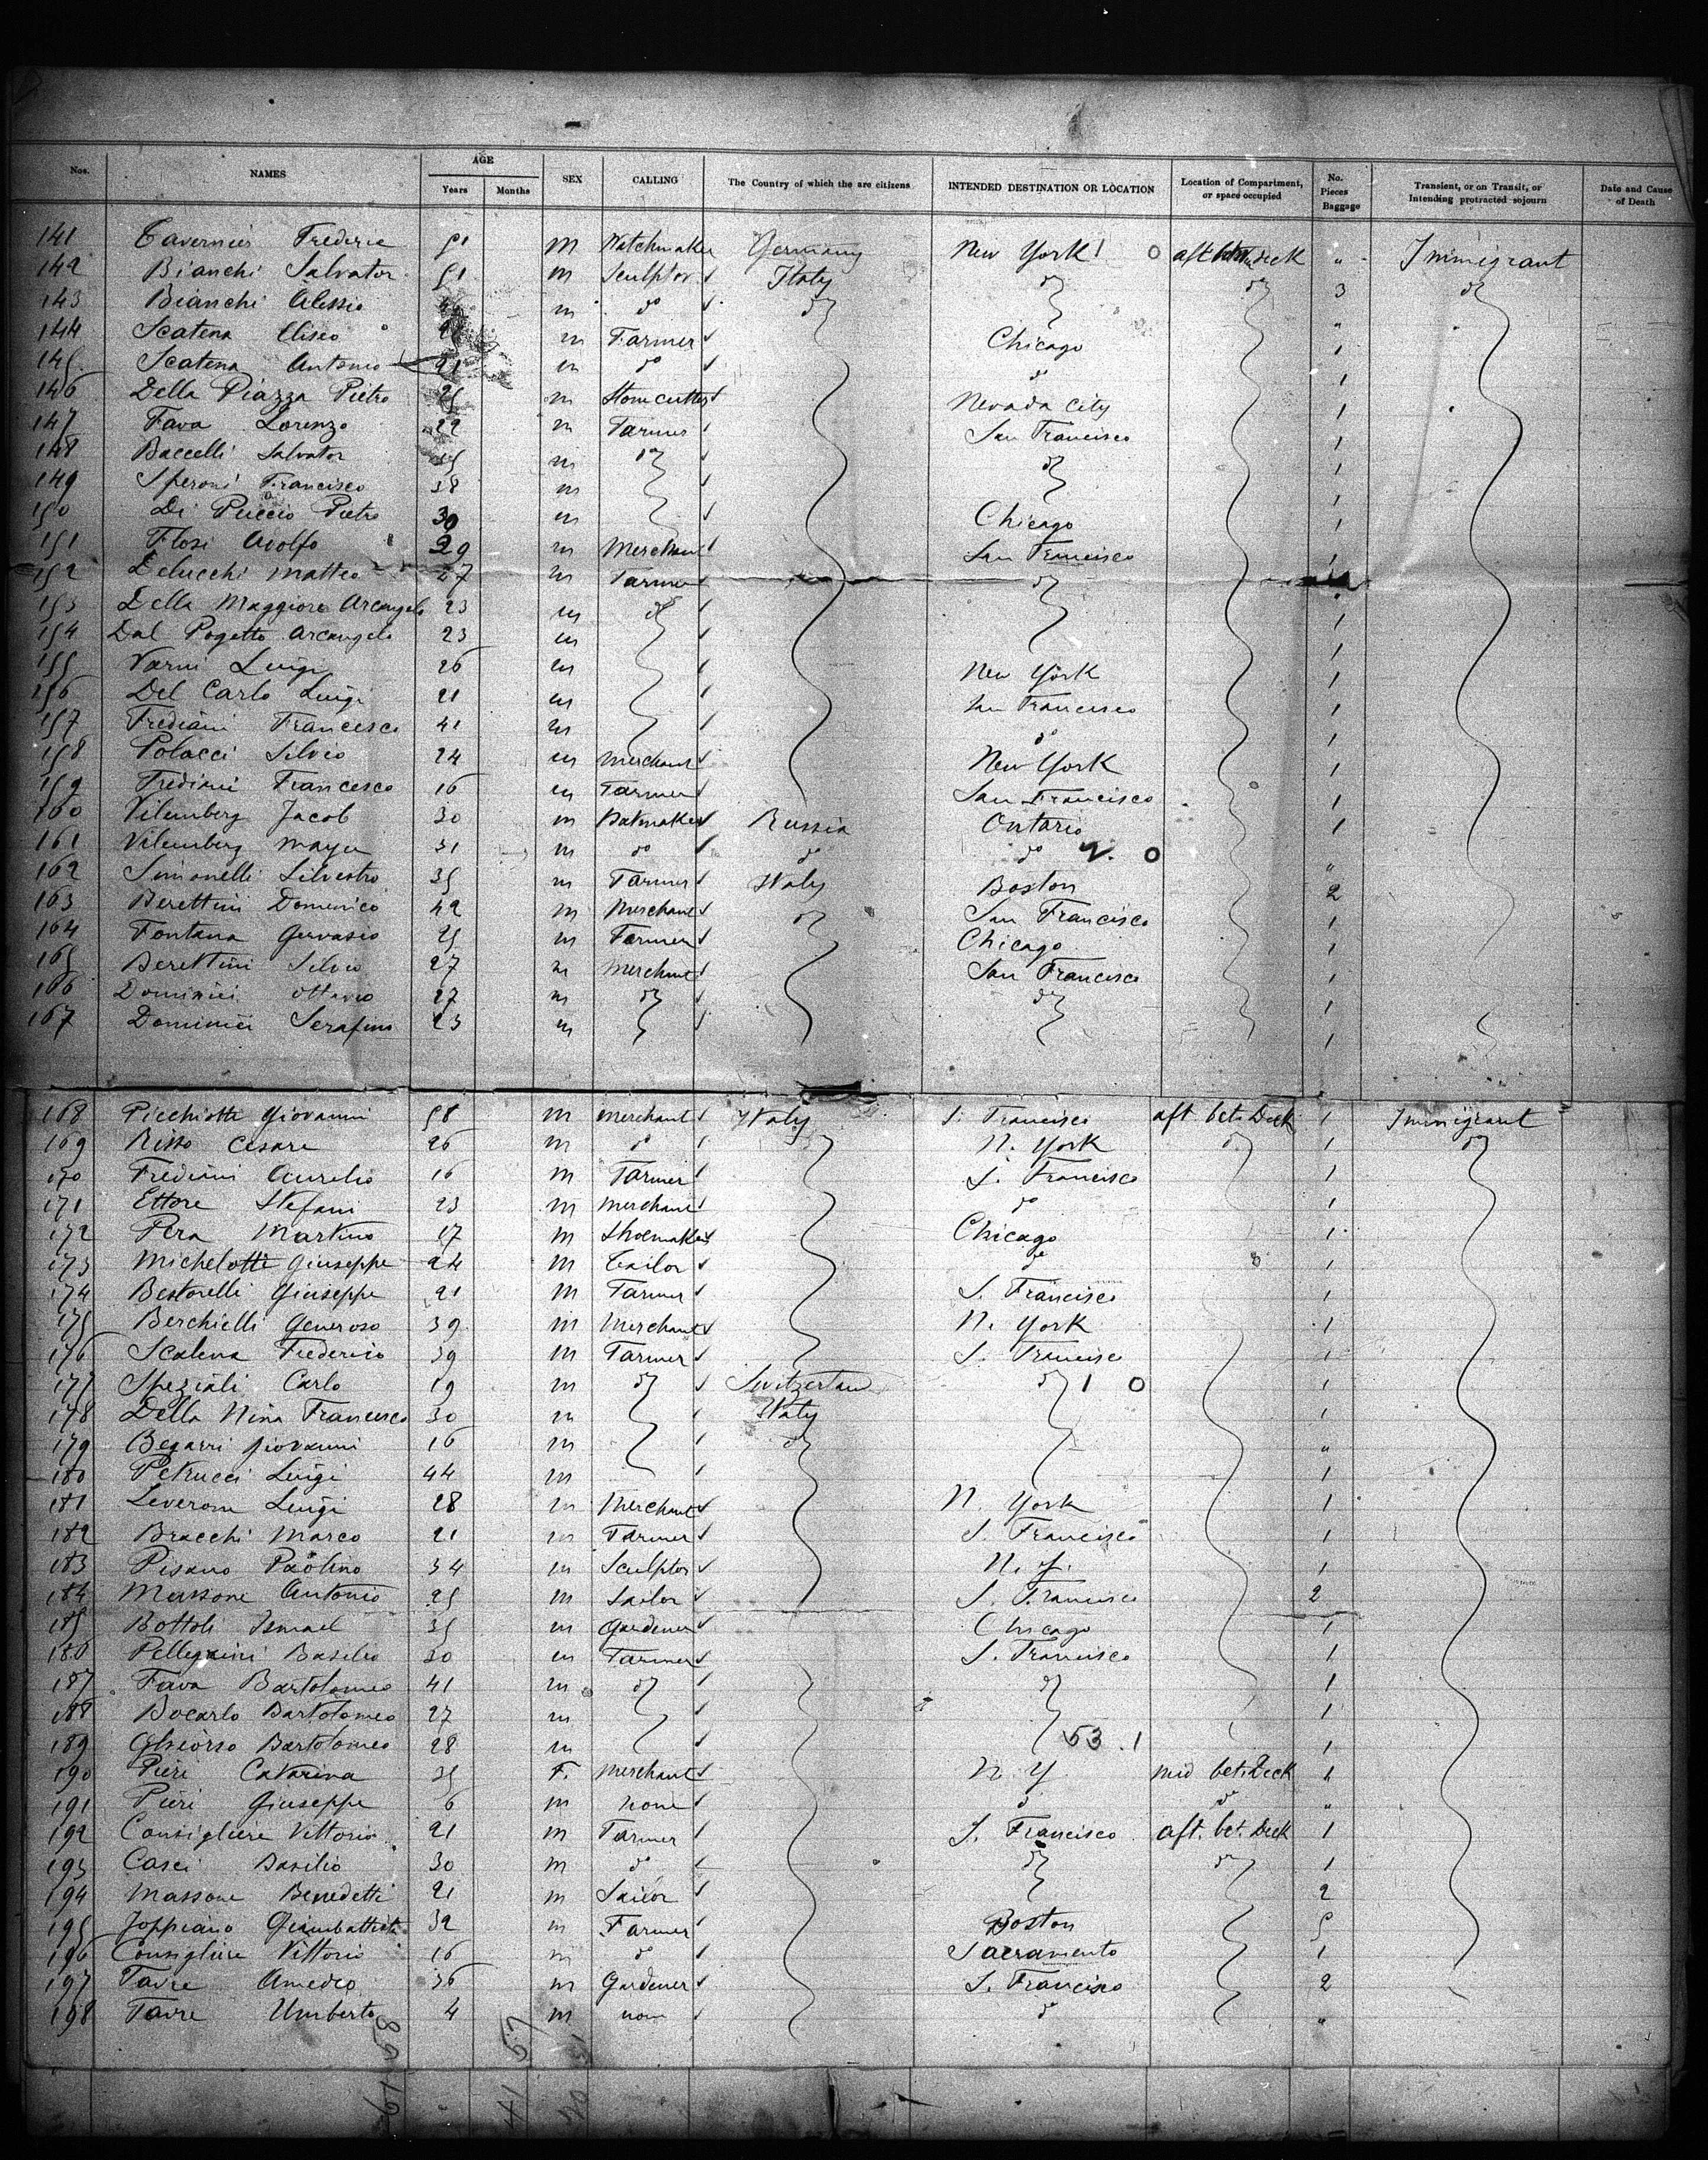 Nos. NAMES AGE Years Months SEX CALLING The Country of which the are citizens INTENDED DESTINATION OR LOCATION Location of Compartment, or space occupied No. Pieces Baggage Transient, or on Transit, or Intending protracted sojourn Date and Cause of Death
141 Tavernier Frederic 51 m Watchmaker Germany New York 1 0 aft betw deck " Immigrant
142 Bianchi Salvator 51 m Sculptor Italy do do 3 do
143 Bianchi Alessio m do do "
144 Scatena Eliseo m Farmer Chicago 1
145 Scatena Antonio 21 m do do 1
146 Della Piazza Pietro 25 m Stonecutter Nevada City 1
147 Fava Lorenzo 22 m Farmer San Francisco 1
148 Baccelli Salvator 35 m do do 1
149 Speroni Francisco 38 m 1
150 Di Puccio Pietro 30 m Chicago 1
151 Flosi Adolfo 29 m Merchant San Francisco 1
152 Delucchi Matteo 27 m Farmer do
153 Della Maggiora Arcangelo 23 m do 1
154 Dal Pogetto Arcangelo 23 m 1
155 Varni Luigi 26 m New York 1
156 Del Carlo Luigi 21 m San Francisco 1
157 Frediani Francesco 41 m do 1
158 Polacci Silvio 24 m Merchant New York 1
159 Frediani Francesco 16 m Farmer San Francisco 1
160 Vilemberg Jacob 30 m Russia Ontario 1
161 Vilemberg Mayer 31 m do do do 2. 0 "
162 Simonelli Silvestro 35 m Farmer Italy Boston 2
163 Berettini Domenico 42 m Merchant do San Francisco 1
164 Fontana Gervasio 25 m Farmer Chicago 1
165 Berettini Silvio 27 m Merchant San Francisco
166 Dominici Ottavio 27 m do do 1
167 Dominici Serafino 23 m 1
168 Picchiotti Giovanni 58 m Merchant Italy S. Francisco aft. bet. Deck 1 Immigrant
169 Risso Cesare 26 m do do N. York do 1 do
170 Frediani Aurelio 16 m Farmer S. Francisco 1
171 Ettore Stefani 23 m Merchant do 1
172 Pera Martino 17 m Shoemaker Chicago 1
173 Michelotti Giuseppe 24 m Tailor do 1
174 Bestorelli Giuseppe 21 m Farmer S. Francisco 1
175 Berchielli Generoso 39 m Merchant N. York 1
176 Scatena Frederico 39 m Farmer S. Francisc 1
177 Speziali Carlo 19 m do Switzerland do 1 0 1
178 Della Nina Francesco 30 m Italy 1
179 Begarri Giovanni 16 m do "
180 Petrucci Luigi 44 m 1
181 Leverone Luigi 28 m Merchant N. York 1
182 Bracchi Marco 21 m Farmer S. Francisco 1
183 Pisano Paolino 34 m Sculptor N. Y. 1
184 Massone Antonio 25 m Sailor S. Francisco 2
185 Bottoli Ismael 35 m Gardener Chicago 1
186 Pellegrini Basilio 30 m Farmer S. Francisco 1
187 Fava Bartolomeo 41 m do do 1
188 Bocarlo Bartolomeo 27 m 1
189 Ghiorso Bartolomeo 28 m 53. 1 1
190 Pieri Catarina 35 F. Merchant N. Y. mid bet. Deck 1
191 Pieri Giuseppe 6 m none do do "
192 Consigliere Vittorio 21 m Farmer S. Francisco aft. bet. Deck 1
193 Casci Basilio 30 m do do do 1
194 Massone Benedetti 21 m Sailor 2
195 Joppiano Giambattista 32 m Farmer Boston 5
196 Consigliere Vittorio 16 m do Sacramento 1
197 Favre Amedeo 36 m Gardener S. Francisco 2
198 Favre Umberto 4 m none do "